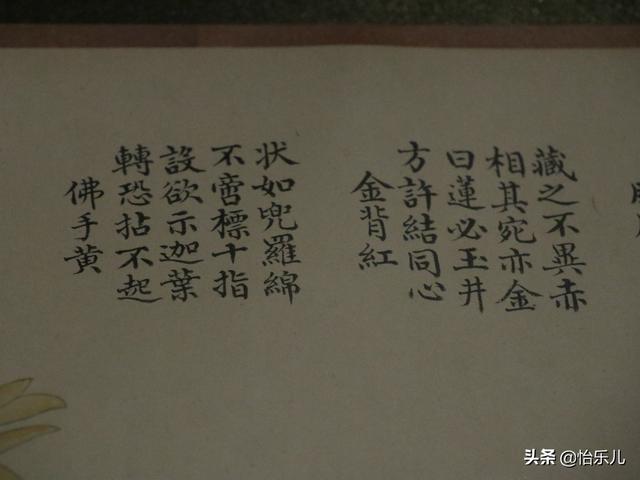 藏之不異赤
相其宛亦金
曰蓮必玉井
方許結同心
金背紅
状如兜羅綿
不啻標十指
設欲示迦葉
轉恐拈不起
佛手黄
头条 @怡乐儿